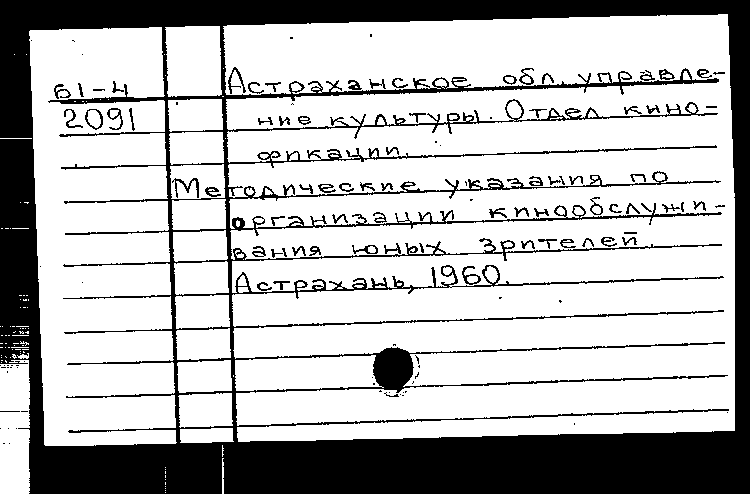 61-4
2091
Астраханское обл. управле-
ние культуры. Отдел кино-
фикации.
Методические указания по
организации кинообслужи-
вания юных зрителей.
Астрахань, 1960.